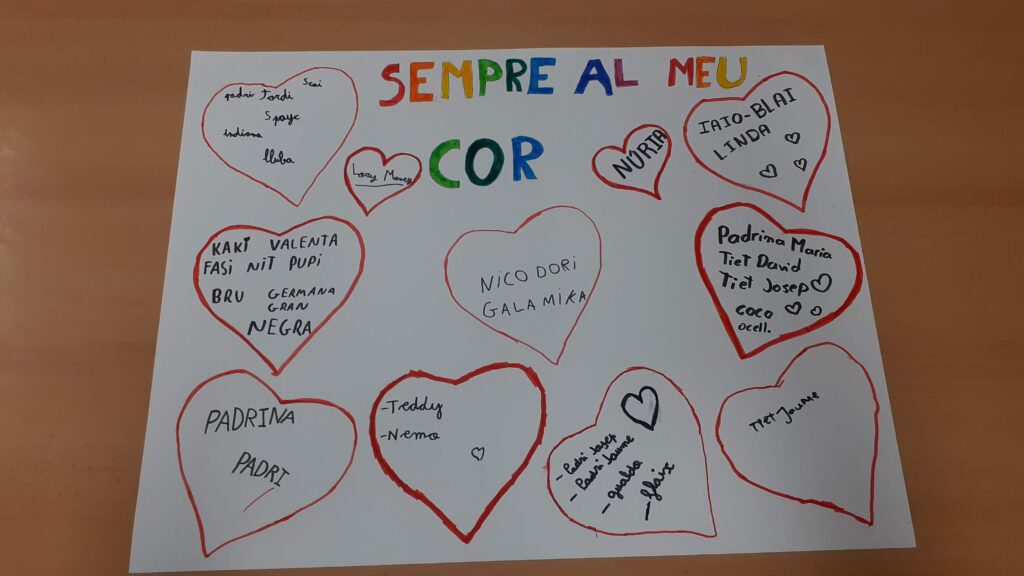 SEMPRE AL MEU
COR
padri Jordi
Spayc
indiana
lluba
Lary
NÚRIA
IAIO-BLAI
LINDA
KAKI VALENTA
FASI NIT PUPI
BRU GERMANA
GRAN
NEGRA
NICO DORI
GALA MIKA
Padrina Maria
Tiet David
Tiet Josep
coco
ocell.
PADRINA
PADRI
-Teddy
-Nemo
- Padri Josep
- Padri Jaume
- gualda
- flaix
Tiet Jaume